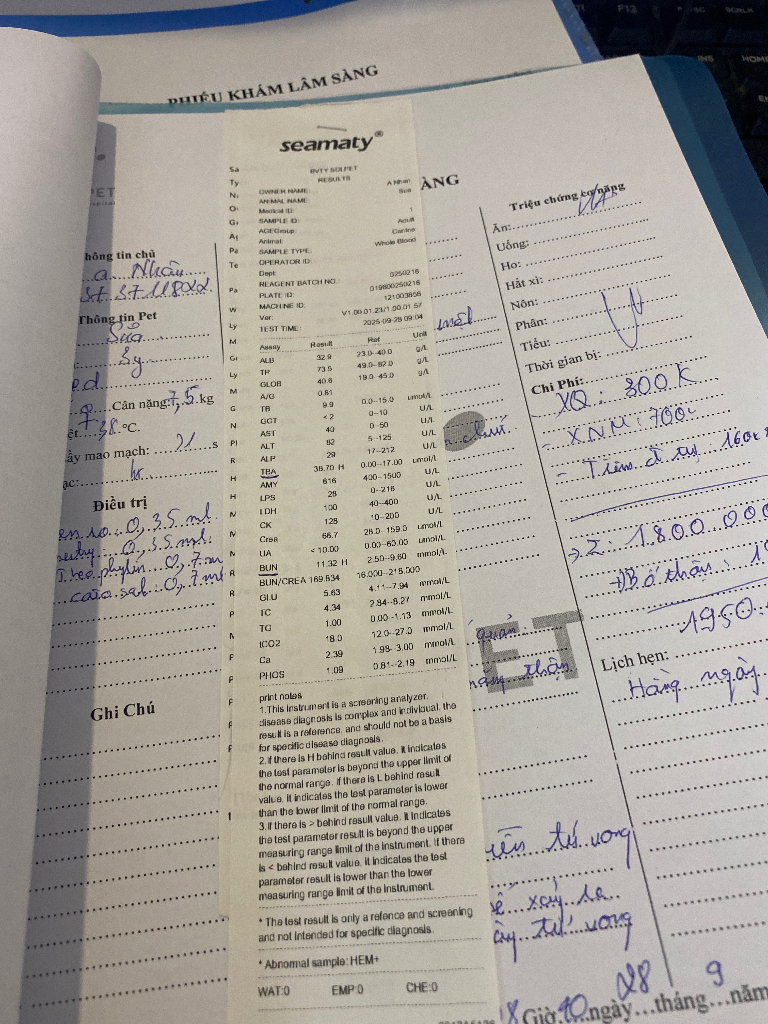 PHIẾU KHÁM LÂM SÀNG
seamaty®
BVTY SOI PET
RESULTS
OWNER NAME: A Nhan
ANIMAL NAME: Sua
Medical ID:
SAMPLE ID: 1
AGEGroup: Adult
Animal: Canine
SAMPLE TYPE: Whole Blood
OPERATOR ID:
Dept:
REAGENT BATCH NO.: 0250216
PLATE ID: 019800250216
MACHINE ID: 121003656
Ver: V1.00.01.23/1.00.01.57
TEST TIME: 2025-09-28 09:04
Assay Result Ref Unit
ALB 32.9 23.0--40.0 g/L
TP 73.5 49.0--82.0 g/L
GLOB 40.6 19.0--45.0 g/L
A/G 0.81
TB 9.9 0.0--15.0 umol/L
GGT <2 0--10 U/L
AST 40 0--50 U/L
ALT 82 5--125 U/L
ALP 29 17--212 U/L
TBA 38.70 H 0.00--17.00 umol/L
AMY 616 400--1500 U/L
LPS 28 0--216 U/L
LDH 100 40--400 U/L
CK 128 10--200 U/L
Crea 66.7 28.0--159.0 umol/L
UA <10.00 0.00--60.00 umol/L
BUN 11.32 H 2.50--9.60 mmol/L
BUN/CREA 169.634 16.000--218.000
GLU 5.63 4.11--7.94 mmol/L
TC 4.34 2.84--8.27 mmol/L
TG 1.00 0.00--1.13 mmol/L
tCO2 18.0 12.0--27.0 mmol/L
Ca 2.39 1.98--3.00 mmol/L
PHOS 1.09 0.81--2.19 mmol/L
print notes
1.This instrument is a screening analyzer,
disease diagnosis is complex and individual, the
result is a reference, and should not be a basis
for specific disease diagnosis.
2.if there is H behind result value, it indicates
the test parameter is beyond the upper limit of
the normal range. if there is L behind result
value, it indicates the test parameter is lower
than the lower limit of the normal range.
3.if there is > behind result value, it indicates
the test parameter result is beyond the upper
measuring range limit of the instrument. if there
is < behind result value, it indicates the test
parameter result is lower than the lower
measuring range limit of the instrument.
* The test result is only a refence and screening
and not intended for specific diagnosis.
* Abnormal sample: HEM+
WAT:0 EMP:0 CHE:0
ÀNG
PET
hông tin chủ
a. Nhân
Thông tin Pet
Sữa
Cân nặng: 7,5 kg
ệt: 38 °C
ầy mao mạch: s
ạc:
Điều trị
0,35 ml
0,35 ml
Theophylin 0,7 ml
0,7 ml
Ghi Chú
Triệu chứng cơ năng
Ăn:
Uống:
Ho:
Hắt xì:
Nôn:
Phân:
Tiểu:
Thời gian bị:
Chi Phí:
- XQ: 300K
- XNM: 700
- Tiêm đ trị: 160
1.800.000
1950.
Lịch hẹn:
Hàng ngày
quản
thận
ET
tử vong
xảy ra
tử vong
Giờ 10 ngày 28 tháng 9 năm
F12
INS
HOME